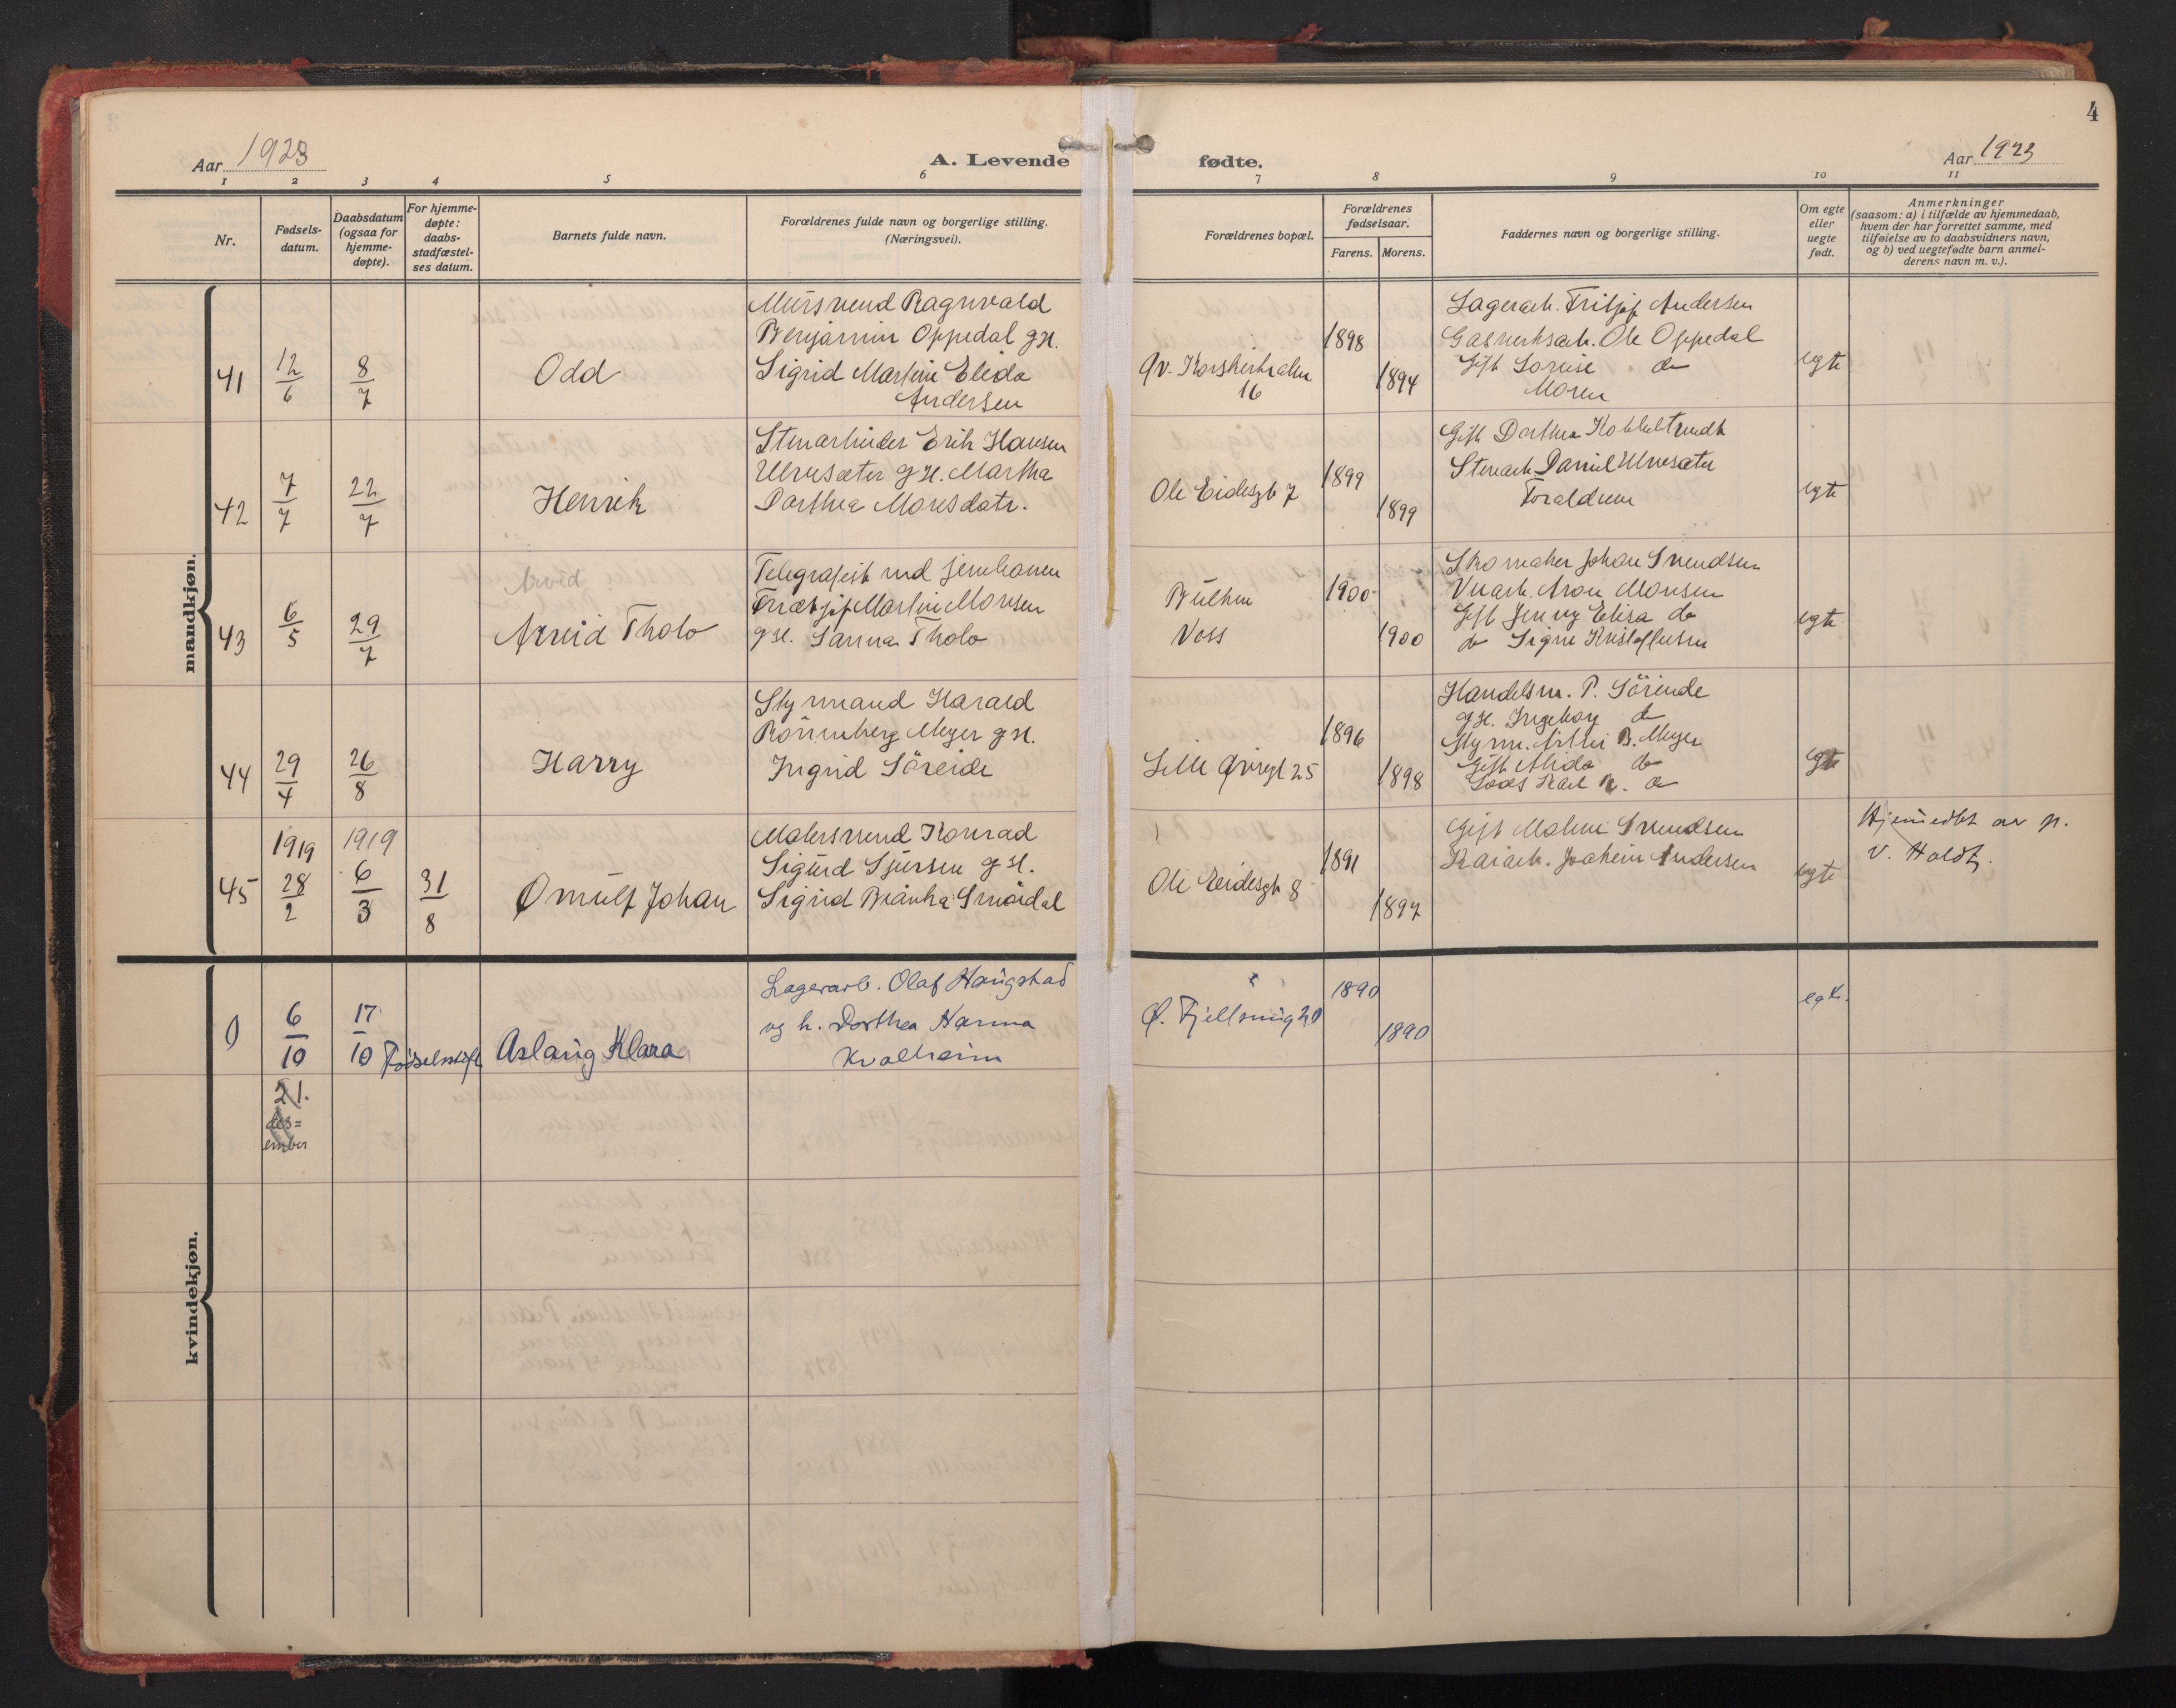 4
Aar 1923
A. Levende fødte.
Aar 1923
1 2 3 4 5 6 7 8 9 10 11
Nr.
Fødsels-
datum.
Daabsdatum
(ogsaa for
hjemme-
døpte).
For hjemme-
døpte:
daabs-
stadfæstel-
ses datum.
Barnets fulde navn.
Forældrenes fulde navn og borgerlige stilling.
(Næringsvei).
Forældrenes bopæl.
Forældrenes
fødselsaar.
Farens. Morens.
Faddernes navn og borgerlige stilling.
Om egte
eller
uegte
født.
Anmerkninger
(saasom: a) i tilfælde av hjemmedaab,
hvem der har forrettet samme, med
tilføielse av to daabsvidners navn,
og b) ved uegtefødte barn anmel-
derens navn m. v.).
mandkjøn.
41
12/6
8/7
Odd
Mursvend Ragnvald
Benjamin Oppedal g H.
Sigrid Martine Elida
Andersen
16
1898
1894
Lagerarb. Fritjof Andersen
Gasverksarb. Ole Oppedal
Gift Lovise do
Moren
egte
42
7/7
22/7
Henrik
Stenarbeider Erik Hansen
Ulvesæter g H. Martha
Dorthea Monsdatr.
Ole Eidesgt 7
1899
1899
Gift Dorthea
Stenarb. Daniel Ulvesæter
Foraldrene
egte
43
6/5
29/7
Arvid
Arvid Tholo
Telegrafist ved jernbanen
Martin Monsen
g H. Sanna Tholo
Voss
1900
1900
Skomaker Johan Svendsen
Aron Monsen
Gift Jenny Elisa do
do Signe Kristoffersen
egte
44
29/4
26/8
Harry
Styrmand Harald
Rönnenberg Meyer g H.
Ingrid Söreide
Lille 25
1896
1898
Handelsm. P. Söreide
g H. Ingeborg do
Styrm. B. Meyer
Gift Alida do
Karl do
egte
45
1919
28/2
1919
6/3
31/8
Ørnulf Johan
Malersvend Konrad
Sigurd Sjursen g H.
Sigrid Bianka Smördal
Ole Eidesgt 8
1891
1897
Gift Malene Svendsen
Kaiarb. Joakim Andersen
egte
Hjemmedbt av p.
v. Holdt.
kvindekjøn.
0
6/10
17/10
Födselsstift.
21.
des=
ember
Aslaug Klara
Lagerarb. Olaf Haugstad
og h. Dorthea Hanna
Kvalheim
Ø. Fjellsmug 20
1890
1890
egte.